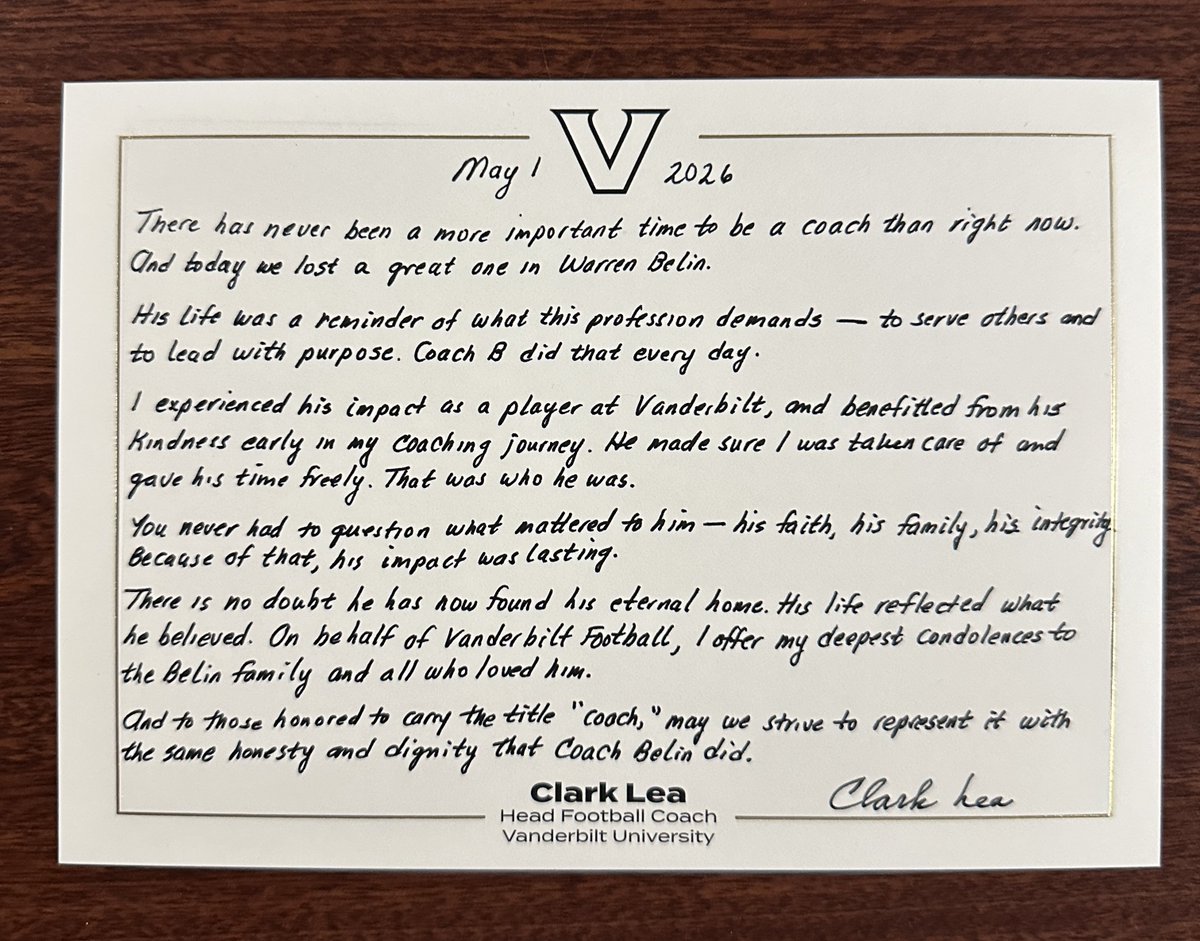 V
May 1 2026
There has never been a more important time to be a coach than right now.
And today we lost a great one in Warren Belin.
His life was a reminder of what this profession demands — to serve others and
to lead with purpose. Coach B did that every day.
I experienced his impact as a player at Vanderbilt, and benefitted from his
kindness early in my coaching journey. He made sure I was taken care of and
gave his time freely. That was who he was.
You never had to question what mattered to him — his faith, his family, his integrity.
Because of that, his impact was lasting.
There is no doubt he has now found his eternal home. His life reflected what
he believed. On behalf of Vanderbilt Football, I offer my deepest condolences to
the Belin family and all who loved him.
And to those honored to carry the title "coach," may we strive to represent it with
the same honesty and dignity that Coach Belin did.
Clark Lea
Clark Lea
Head Football Coach
Vanderbilt University